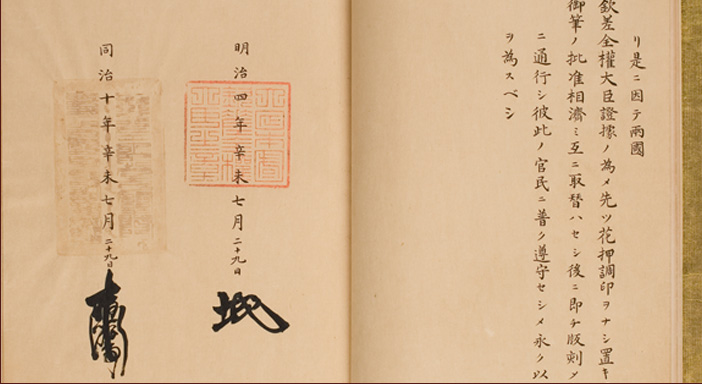 リ是ニ因テ兩國
欽差全權大臣證據ノ為メ先ツ花押調印ヲナシ置キ
御筆ノ批准相濟ミ互ニ取替ハセシ後ニ即チ版刻シ
ニ通行シ彼此ノ官民ニ普ク遵守セシメ永ク以
ヲ為スベシ
明治四年辛未七月二十九日
同治十年辛未七月二十九日